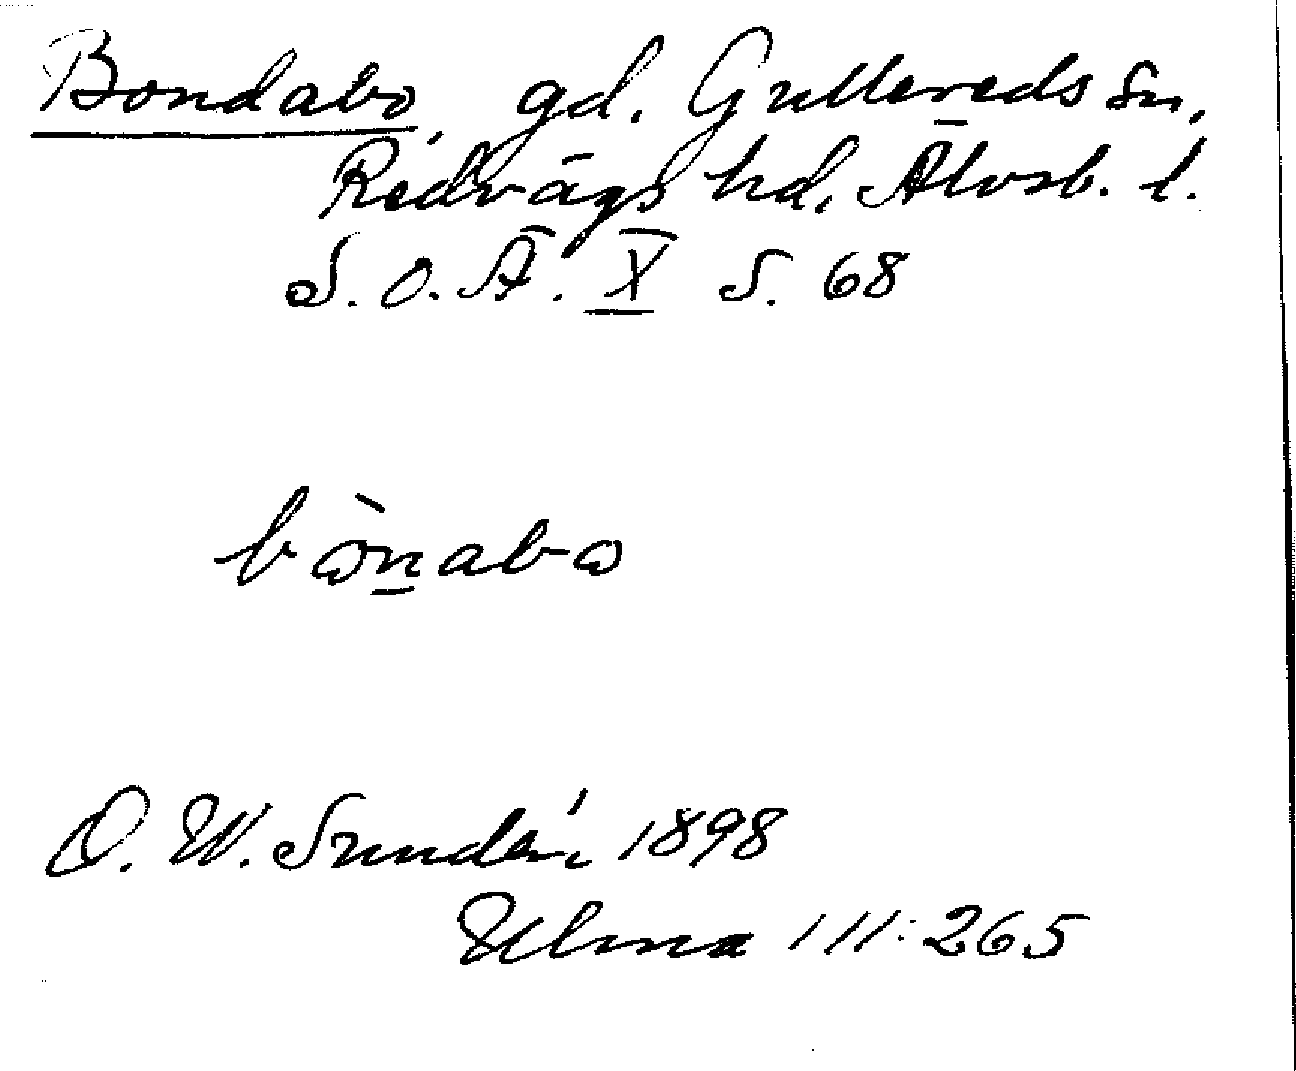 Bondabo, gd. Gullereds sn,
Redvägs hd. Älvsb. l.
S. O. Ä. X S. 68
bò̱naba
O. W. Sundén 1898
Ulma 111:265